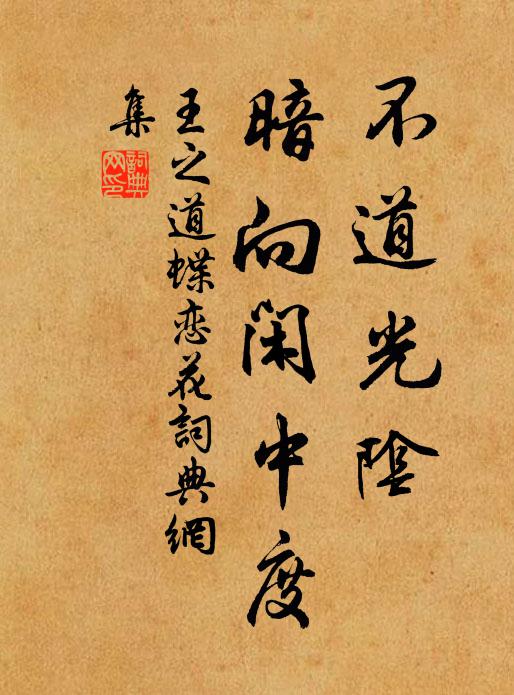 不道光陰
暗向閑中度
王之道蝶恋花詞典網
集
詞典
网印